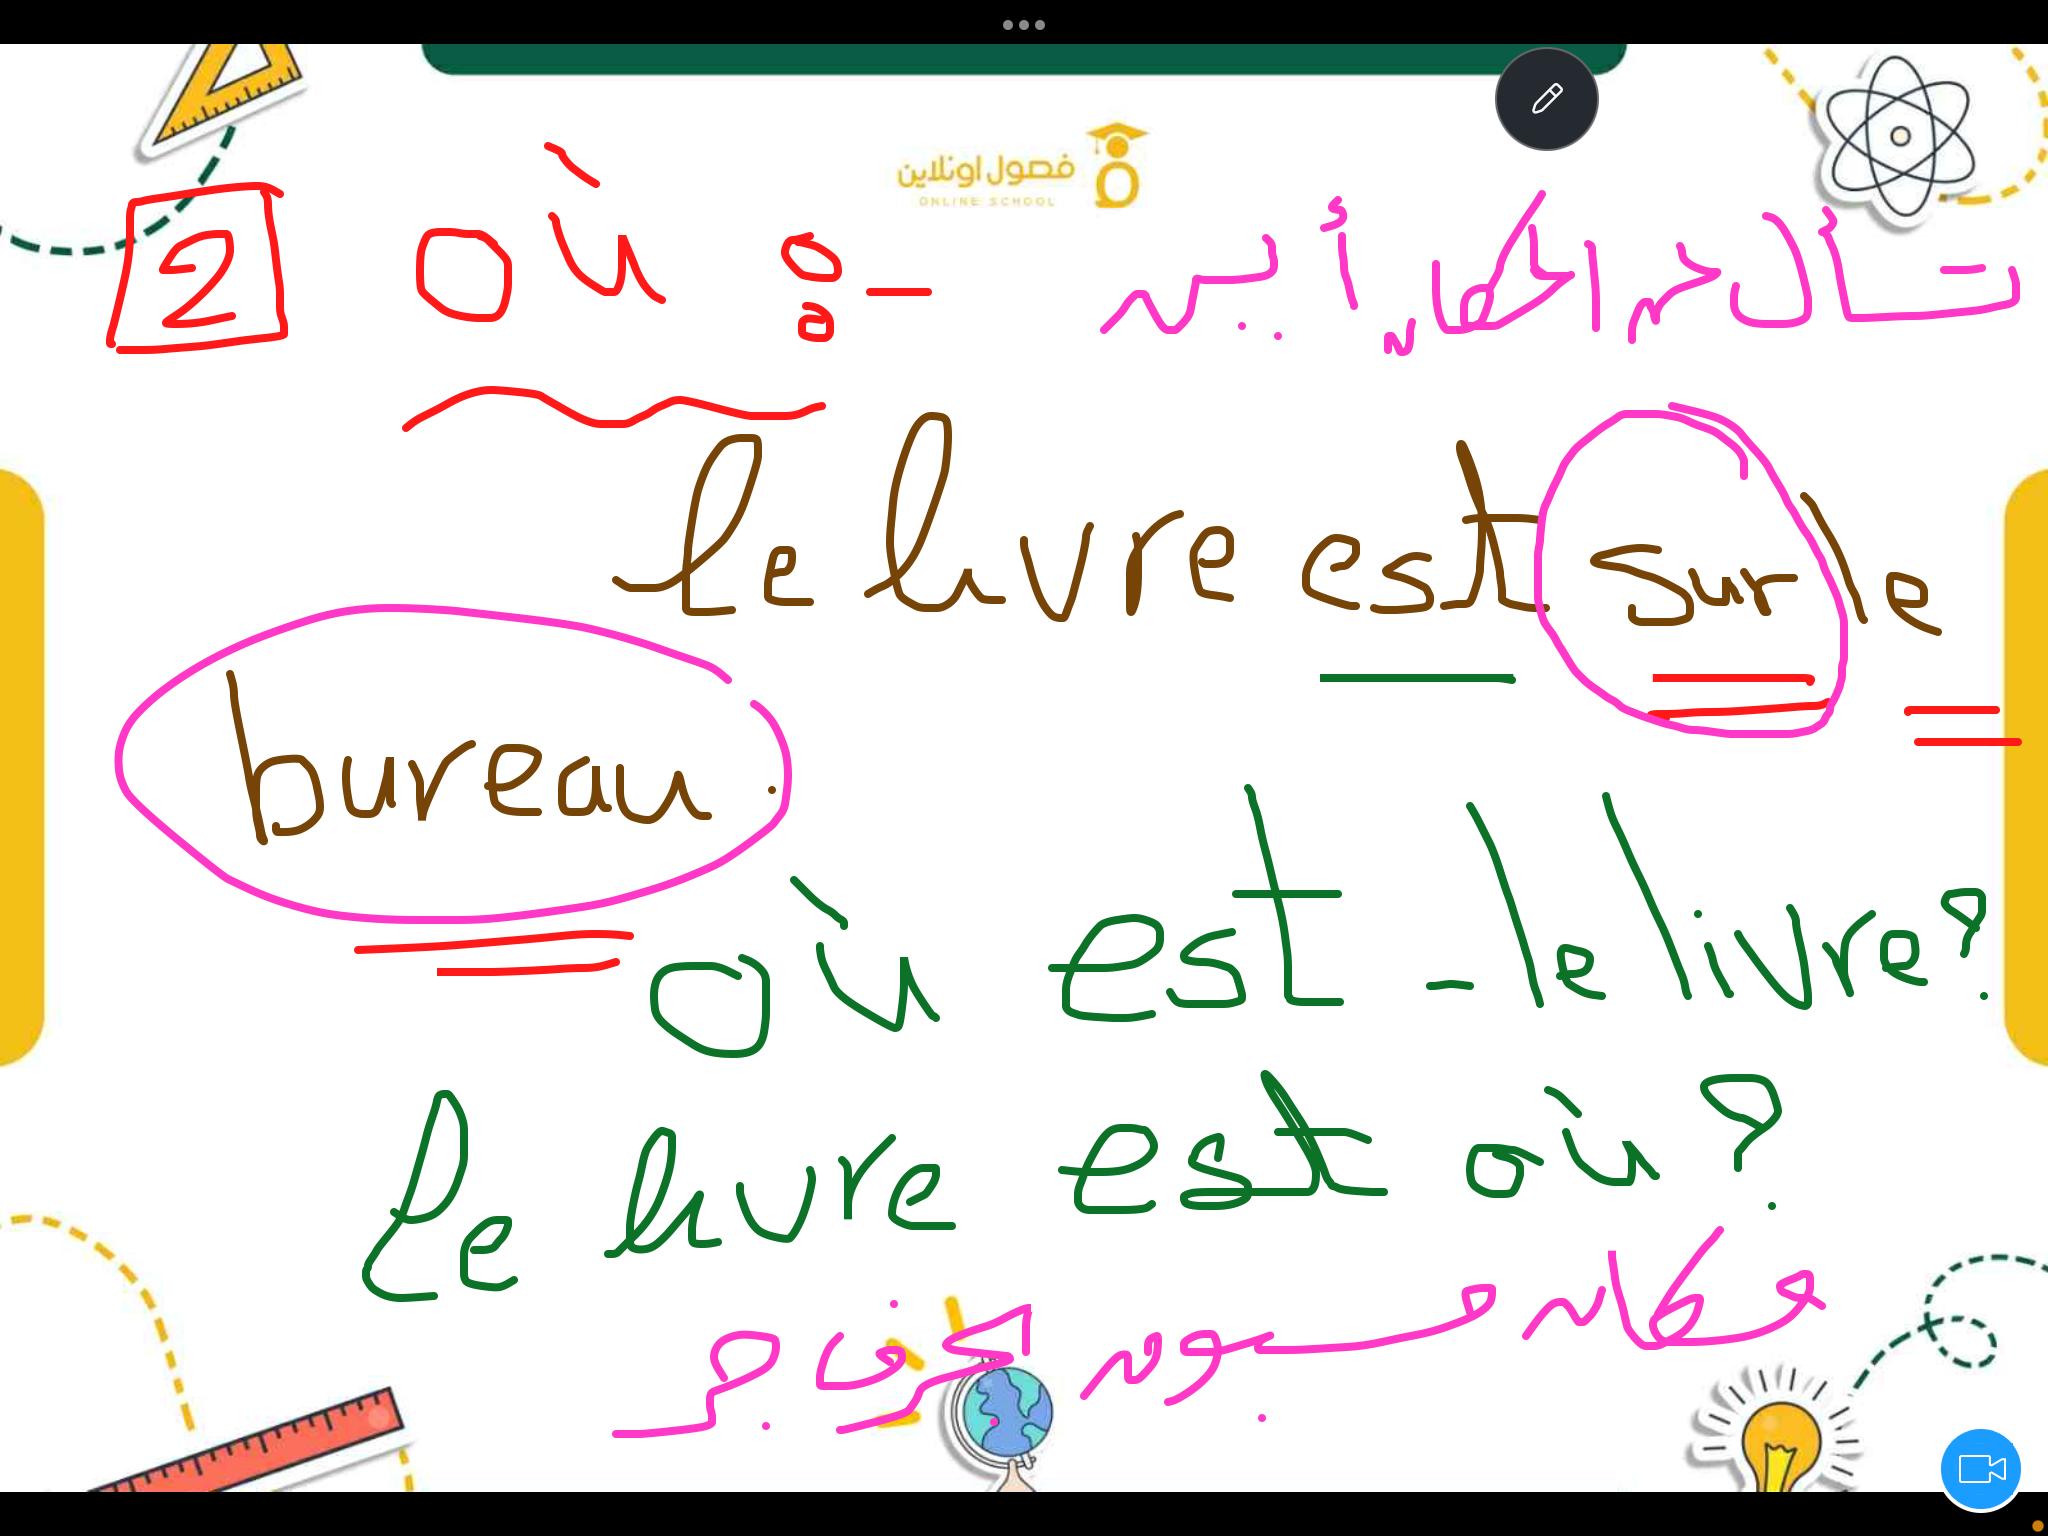 فصول اونلاين
ONLINE SCHOOL
2 où :- تسأل عن المكان أين
le livre est sur le
bureau.
où est - le livre?
Le livre est où?
مكان مسبوق بحرف جر